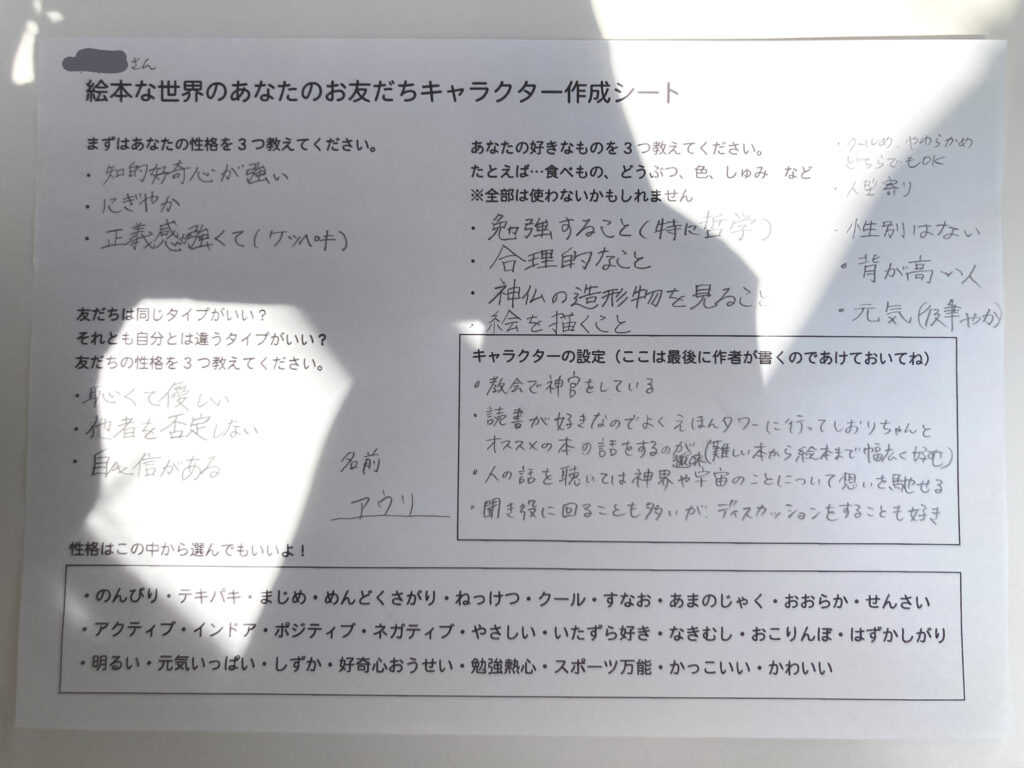 さん
絵本な世界のあなたのお友だちキャラクター作成シート
まずはあなたの性格を3つ教えてください。
・知的好奇心が強い
・にぎやか
・正義感強くて(ケッペキ)
友だちは同じタイプがいい？
それとも自分とは違うタイプがいい？
友だちの性格を3つ教えてください。
・恥しくて優しい
・他者を否定しない
・自信がある
名前
アウリ
あなたの好きなものを3つ教えてください。
たとえば…食べもの、どうぶつ、色、しゅみ　など
※全部は使わないかもしれません
・勉強すること(特に哲学)
・合理的なこと
・神仏の造形物を見ること
・絵を描くこと
・クールめ、やわらかめ
どちらでもOK
・人型寄り
・性別はない
・背が高い人
・元気
キャラクターの設定（ここは最後に作者が書くのであけておいてね）
・教会で神官をしている
・読書が好きなのでよくえほんタワーに行ってしおりちゃんと
オススメの本の話をするのが趣味(難しい本から絵本まで幅広く好む)
・人の話を聴いては神界や宇宙のことについて想いを馳せる
・聞き役に回ることも多いが、ディスカッションをすることも好き
性格はこの中から選んでもいいよ！
・のんびり・テキパキ・まじめ・めんどくさがり・ねっけつ・クール・すなお・あまのじゃく・おおらか・せんさい
・アクティブ・インドア・ポジティブ・ネガティブ・やさしい・いたずら好き・なきむし・おこりんぼ・はずかしがり
・明るい・元気いっぱい・しずか・好奇心おうせい・勉強熱心・スポーツ万能・かっこいい・かわいい